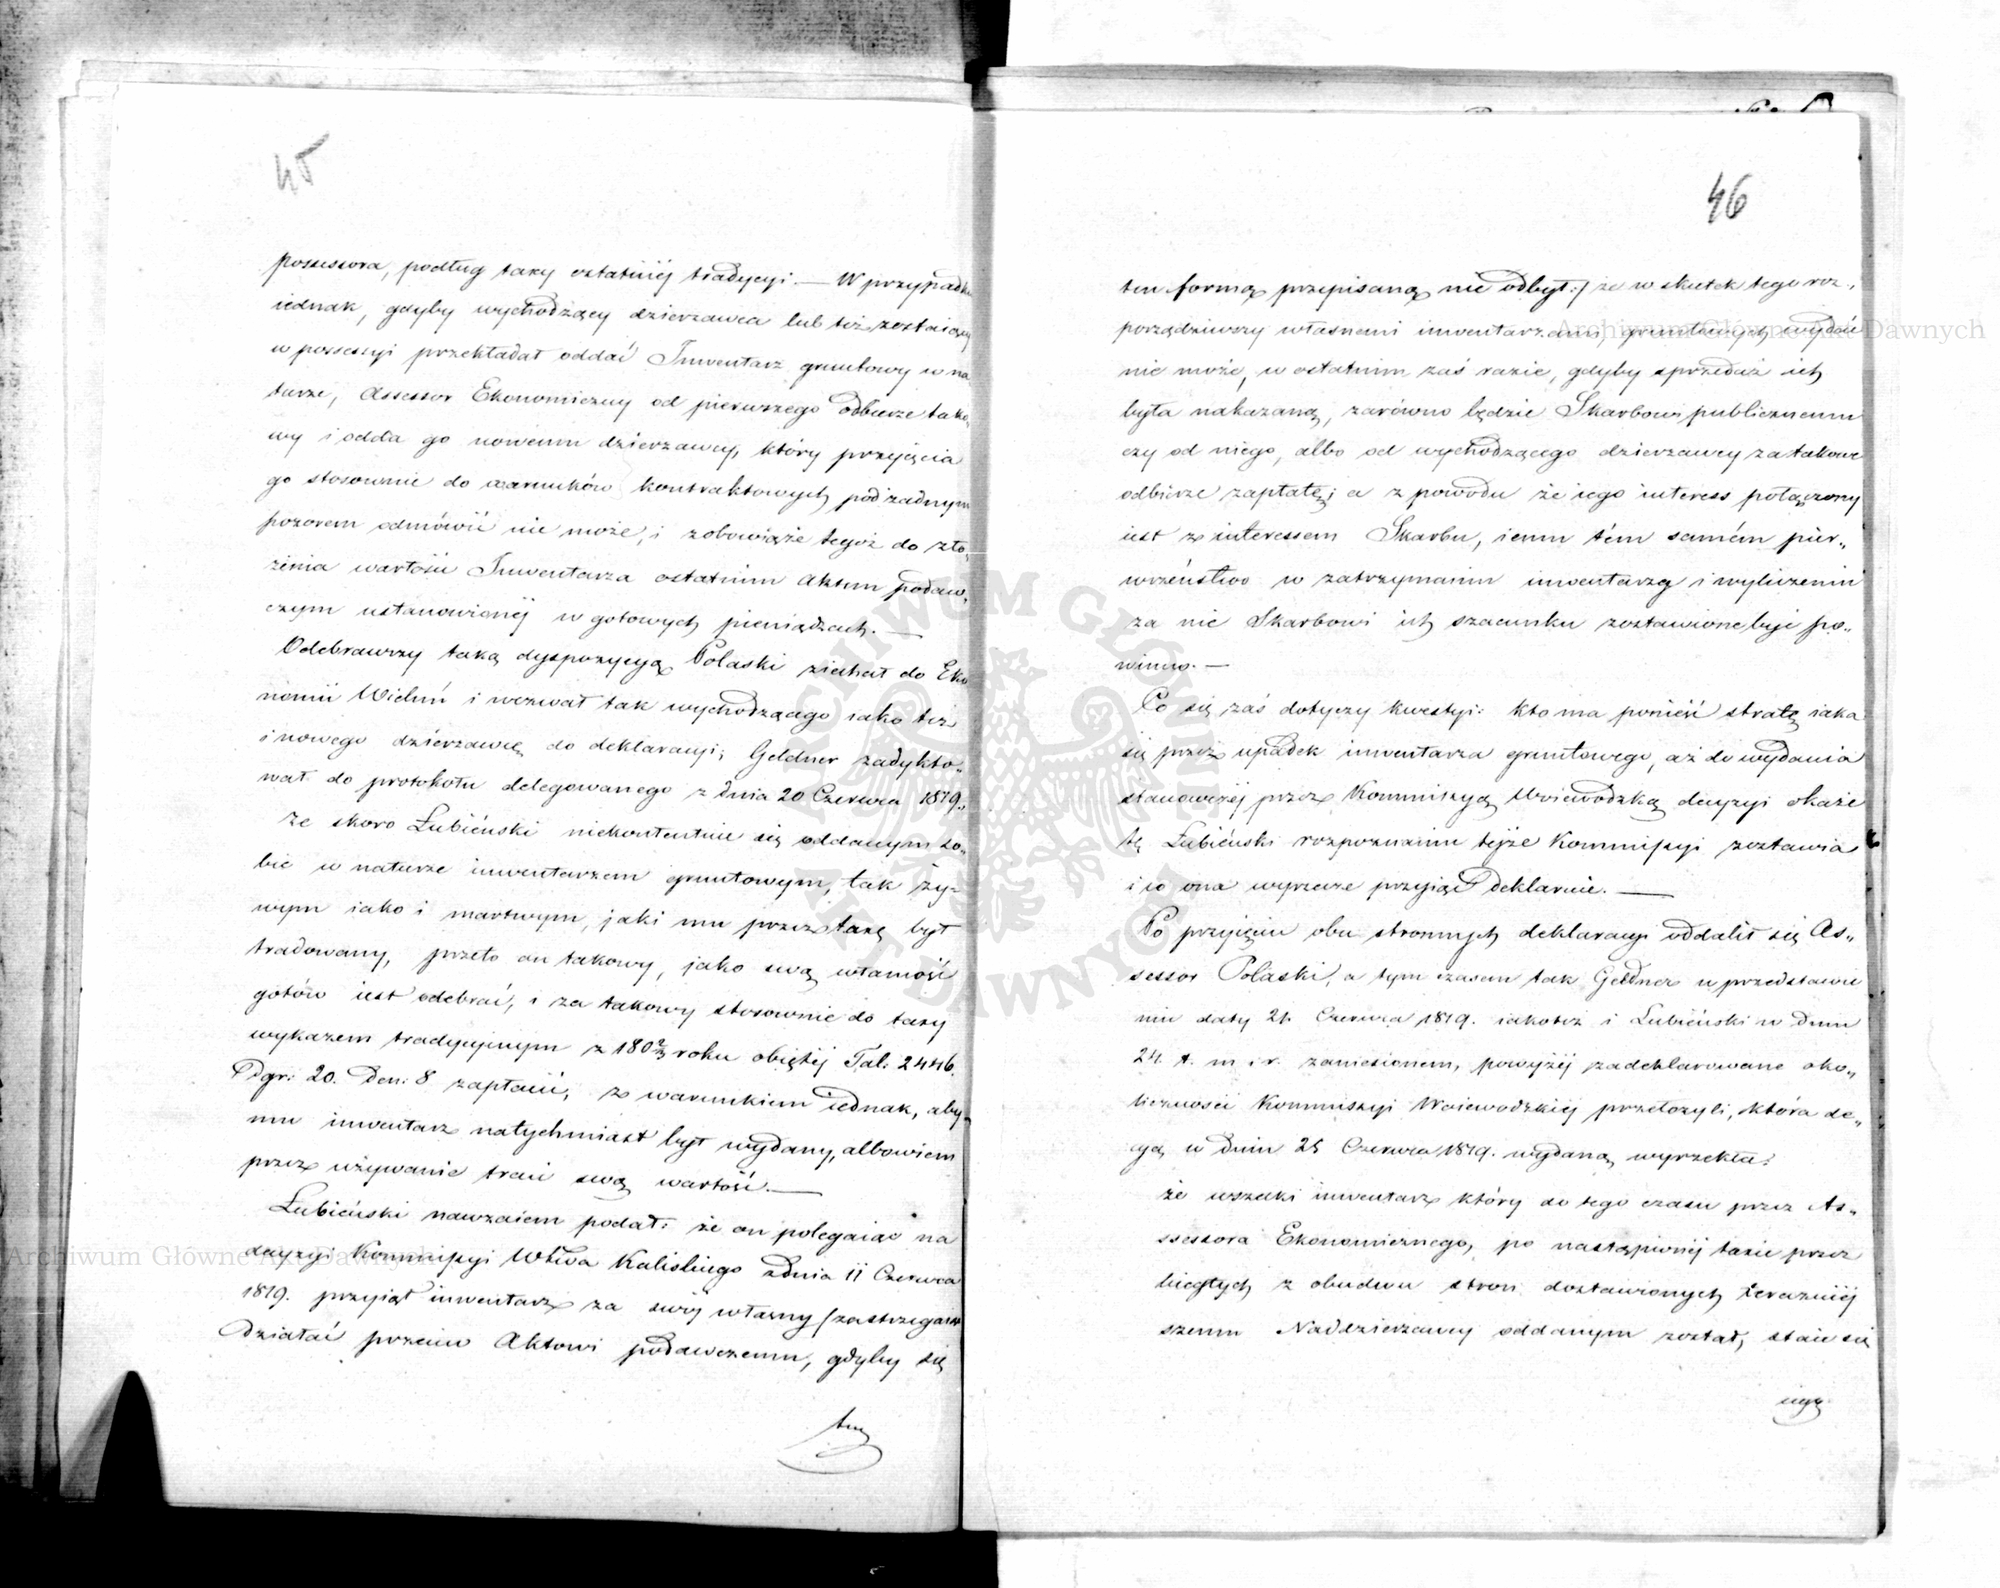 45
possessora, podług taxy ostatniéj tradycyi. — W przypadku
iednak, gdyby wychodzący dzierzawca lub też zostaiący
w possessyi przekładał oddać Inwentarz gruntowy w na
turze, Assessor Ekonomiczny od pierwszego odbierze tako„
wy i odda go nowemu dzierzawcy, który przyięcia
go stosownie do warunków kontraktowych pod żadnym
pozorem odmówić nie może, i zobowiąże tegoż do zło„
żenia wartości Inwentarza ostatnim Aktem podaw„
czym ustanowionéj w gotowych pieniądzach. —
Odebrawszy taką dyspozycyą Polaski ziechał do Eko
nomii Wieluń i wezwał tak wychodzącego iako też
i nowego dzierzawcę do deklaracyi; Geldner zadykto„
wał do protokołu delegowanego z dnia 20 Czerwca 1819.,
że skoro Łubieński niekontentuie się oddanym so„
bie w naturze inwentarzem gruntowym, tak ży-
wym iako i martwym, jaki mu przez taxę był
tradowany, przeto on takowy, jako swą własność
gotów iest odebrać, i za takowy stosownie do taxy
wykazem tradycyinym z 180 2/3 roku obiętéj Tal: 2446
Dgr: 20. Den: 8 zapłacić, z warunkiem iednak, aby
mu inwentarz natychmiast był wydany, albowiem
przez używanie traci swą wartość. —
Łubieński nawzaiem podał: że on polegaiąc na
decyzyi Kommissyi Wtwa Kaliskiego z dnia 11 Czerwca
1819. przyiął inwentarz za swóy własny /zastrzegaiąc
działać przeciw Aktowi podawczemu, gdyby się
ten
46
ten formą przepisaną nie odbył:/ że w skutek tego roz„
porządziwszy własnemi inwentarzami, gruntowych wydać
nie może, w ostatnim zaś razie, gdyby sprzedaż ich
była nakazaną, zarówno będzie Skarbowi publicznemu
czy od niego, albo od wychodzącego dzierzawcy za takowe
odbierze zapłatę; a z powodu że iego interess połączony
iest z interessem Skarbu, iemu tém samém pier„
wszeństwo w zatrzymaniu inwentarzy i wyliczeniu
za nie Skarbowi ich szacunku zostawione być po„
winno. —
Co się zaś dotyczy kwestyi: kto ma ponieść stratę iaka
się przez upadek inwentarza gruntowego, aż do wydania
stanowczéj przez Kommissyą Woiewodzką decyzyi okaże
tę Łubieński rozpoznaniu teyże Kommissyi zostawia
i co ona wyrzecze przyiąć deklaruie. —
Po przyięciu obu stronnych deklaracyi oddalił się As„
sessor Polaski, a tym czasem tak Geldner w przedstawie
niu daty 21. Czerwca 1819. iakoteż i Łubieński w dniu
24. t. m. i r. zaniesionem, powyżéj zadeklarowane oko„
liczności Kommissyi Woiewodzkiéj przełożyli, która de„
cyą w dniu 25 Czerwca 1819. wydaną wyrzekła:
że wszelki inwentarz który do tego czasu przez As„
sessora Ekonomicznego, po nastąpionéj taxie przez
biegłych z obudwu stron dostawionych teraznieij
szemu Naddzierzawcy oddanym został, staie się
iego
Archiwum Główne Akt Dawnych
Archiwum Główne Akt Dawnych
ARCHIWUM GŁÓWNE AKT DAWNYCH